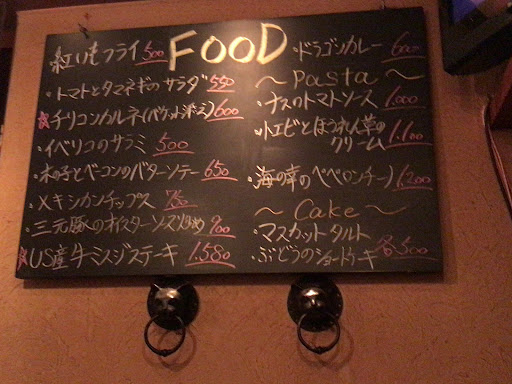 FOOD
紅いもフライ 500
・トマトとタマネギのサラダ 550
★チリコンカルネ(バケット添え) 600
・イベリコのサラミ 500
・木の子とベーコンのバターソテー 650
・メキシカンチップス 750
・三元豚のオイスターソース炒め 900
★US産牛ミスジステーキ 1.580
・ドラゴンカレー 600
〜Pasta〜
・ナスのトマトソース 1.000
・エビとほうれん草の
クリーム 1.100
・海の幸のペペロンチーノ 1.200
〜Cake〜
・マスカットタルト
・ぶどうのショートケーキ 各500